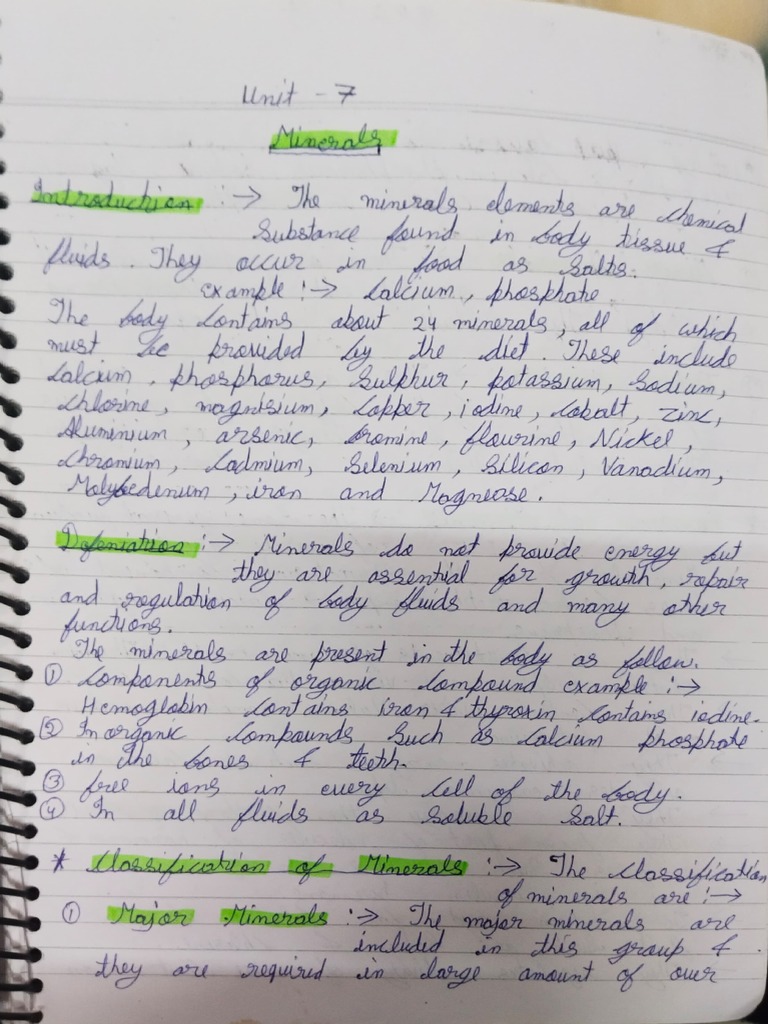 Unit - 7
Minerals
Introduction :→ The minerals elements are chemical
Substance found in body tissue &
fluids. They occur in food as Salts.
example :→ Calcium, phosphate.
The body contains about 24 minerals, all of which
must be provided by the diet. These include
Calcium, phosphorus, Sulphur, potassium, Sodium,
Chlorine, magnisium, Copper, iodine, Cobalt, zinc,
Aluminium, arsenic, bromine, flourine, Nickel,
Chromium, Cadmium, Selenium, Silicon, Vanadium,
Molybedenum, iron and Magnease.
Defeniation :→ Minerals do not provide energy but
they are assential for growth, repair
and regulation of body fluids and many other
functions.
The minerals are present in the body as follow.
① Components of organic Compound example :→
Hemoglobin Contains iron & thyroxin Contains iodine.
② Inorganic Compounds Such as Calcium phosphate
in the bones & teeth.
③ free ions in every Cell of the body.
④ In all fluids as Soluble Salt.
* Classification of Minerals :→ The Classification
of minerals are :→
① Major Minerals :→ The major minerals are
included in this group &
they are required in large amount of over